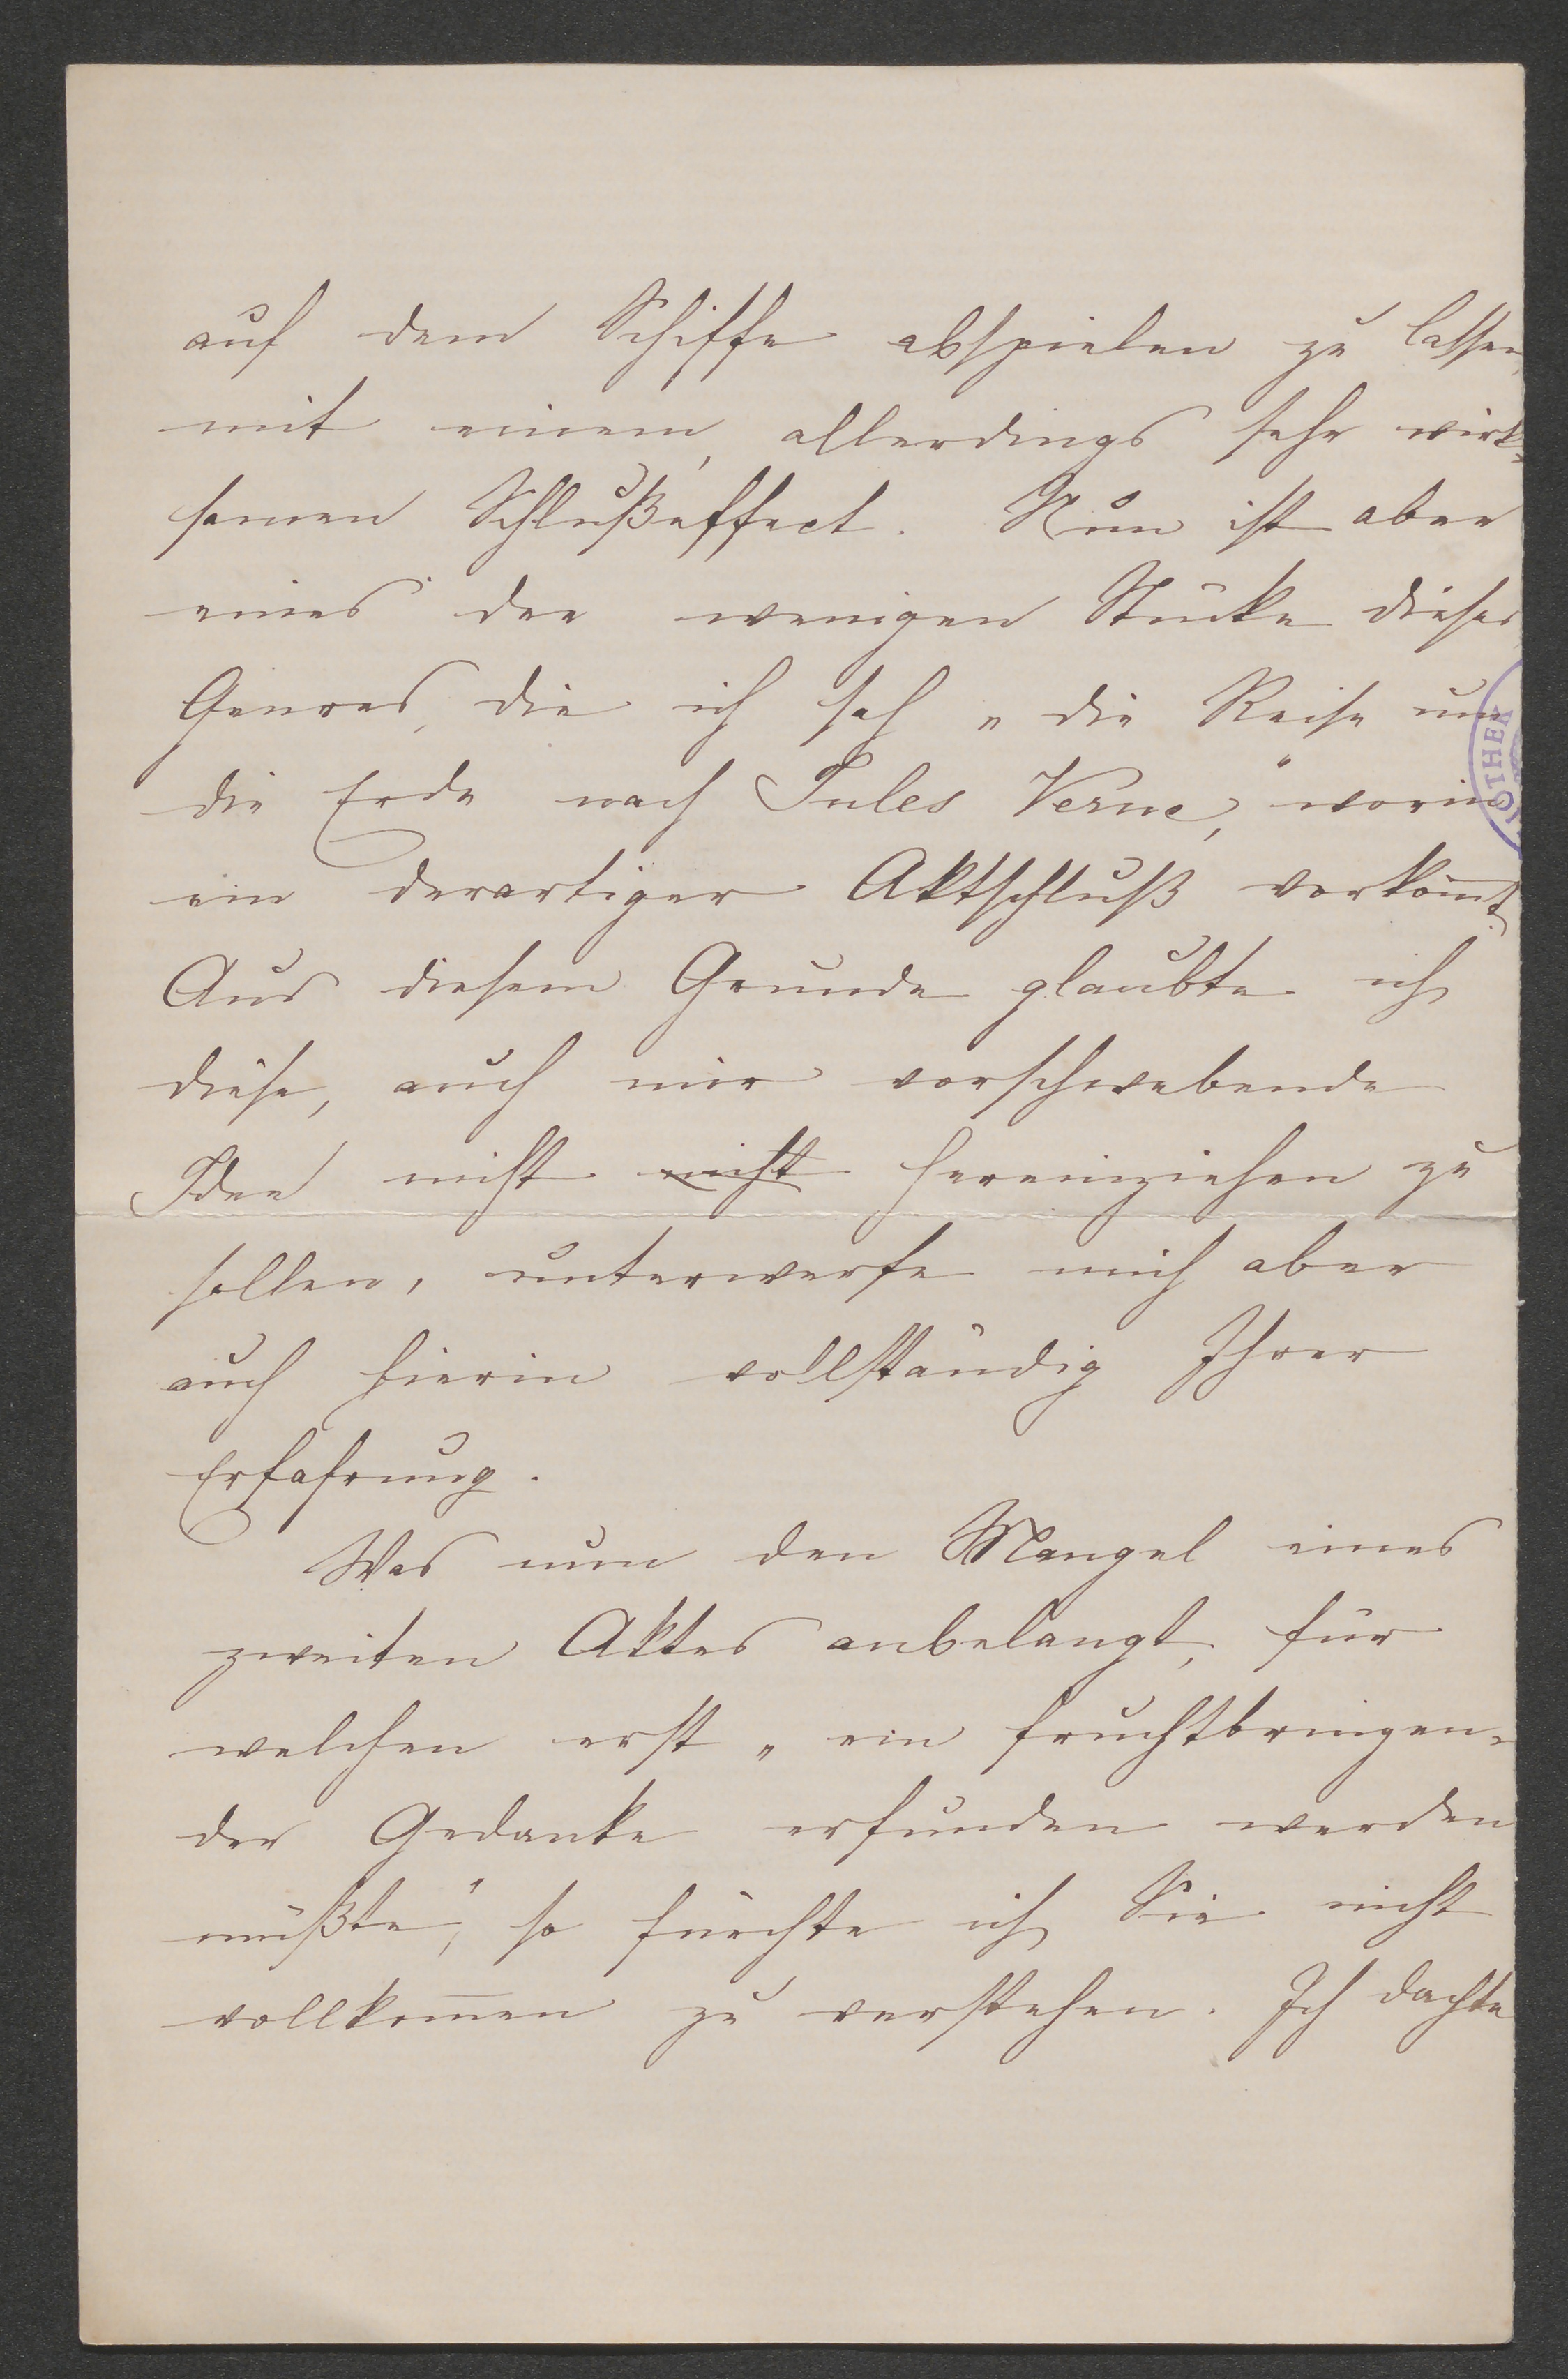 auf dem Schiffe abspielen zu lassen,
mit einem, allerdings sehr wirk=
samen Schlußeffect. Nun ist aber
eines der wenigen Stücke dieses
Genres, die ich sah „die Reise um
die Erde nach Jules Verne,“ worin
ein derartiger Aktschluß vorkom̅t.
Aus diesem Grunde glaubte ich
diese, auch mir vorschwebende
Idee nicht nicht hereinziehen zu
sollen, unterwerfe mich aber
auch hierin vollständig Ihrer
Erfahrung.
Was nun den Mangel eines
zweiten Aktes anbelangt, für
welchen erst „ein fruchtbringen=
der Gedanke erfunden werden
müßte“, so fürchte ich Sie nicht
vollkom̅en zu verstehen. Ich dachte
OTHEK